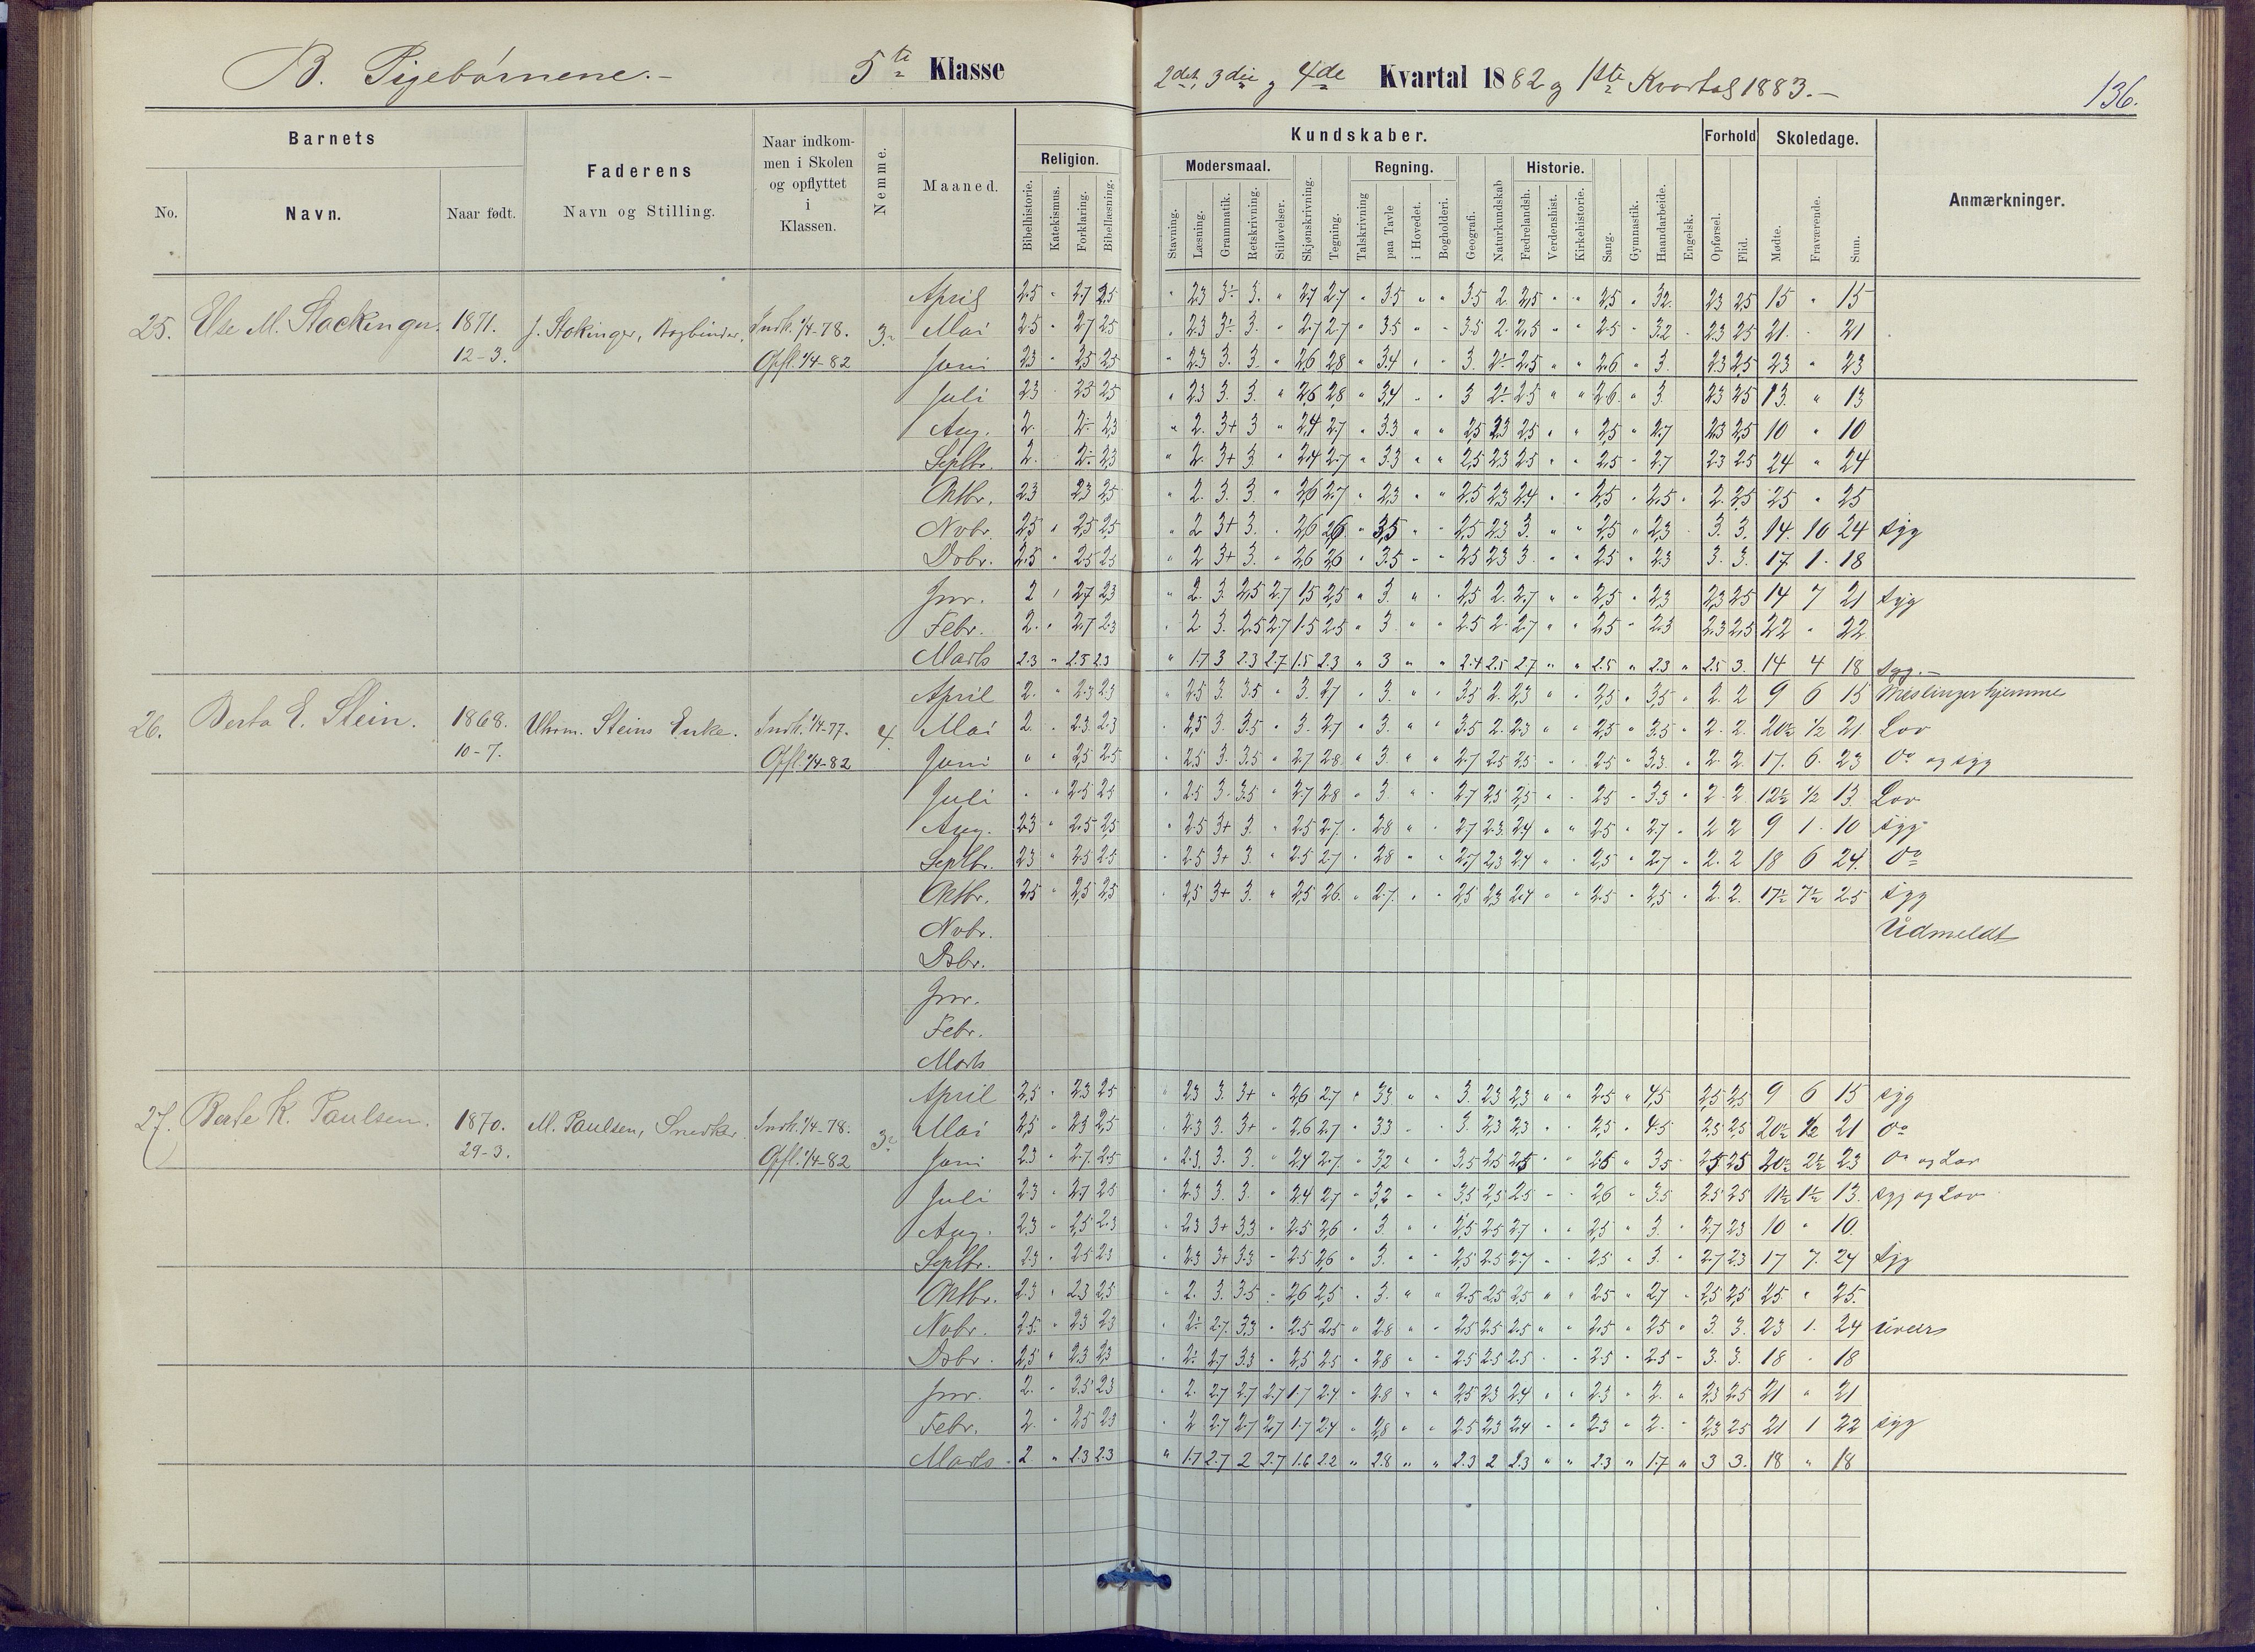 B. Pigebørnene.- 5te Klasse 2det, 3die og 4de Kvartal 1882 og 1ste Kvartal 1883.-
136.
Barnets
No. Navn. Naar født.
Faderens
Navn og Stilling.
Naar indkom-
men i Skolen
og opflyttet
i
Klassen.
Nemme.
Maaned.
Kundskaber.
Religion.
Bibelhistorie. Katekismus. Forklaring. Bibellæsning.
Modersmaal.
Stavning. Læsning. Grammatik. Retskrivning. Stiløvelser.
Skjønskrivning. Tegning.
Regning.
Talskrivning paa Tavle i Hovedet. Bogholderi.
Geografi. Naturkundskab
Historie.
Fædrelandsh. Verdenshist. Kirkehistorie.
Sang. Gymnastik. Haandarbeide. Engelsk.
Forhold
Opførsel. Flid.
Skoledage.
Mødte. Fraværende. Sum.
Anmærkninger.
25. Else M. Stackinger. 1871. J. Stokinger, Bogbinder. Indk. 1/4-78. 3.
12-3. Opfl. 1/4-82
April 25 " 27 25 " 23 3÷ 3. " 27 27 " 35 " " 35 2. 25 " " 25 " 32. 23 25 15 " 15
Mai 25 " 27 25 " 23 3÷ 3. " 27 27 " 35 " " 35 2. 25 " " 25 " 32 23 25 21. 21
Juni 23 " 25 25 " 23 3. 3. " 26 28 " 34 " " 3. 2÷ 25 " " 26 " 3. 23 25 23 " 23
Juli 23 25 25 " 23 3. 3. " 26 28 " 34 " " 3 2÷ 25 " " 26 " 3 23 25 13. " 13
Aug. 2. 2÷ 23 " 2. 3+ 3 " 24 27 " 33 " " 25 23 25 " " 25 " 27 23 25 10 " 10
Septbr. 2. 2÷ 23 " 2. 3+ 3. " 24 27 " 33 " " 25 23 25 " " 25 " 27 23 25 24 " 24
Oktbr. 23 23 25 " 2. 3. 3. " 26 27 " 23 " " 25 23 24 " " 25 " 25 " 2. 25 25 " 25
Novbr. 25 " 25 25 " 2 3+ 3. " 26 26 " 35 " " 25 23 3. " " 25 " 23 3. 3. 14. 10 24 syg
Dcbr. 25 " 25 25 " 2 3+ 3. " 26 26 " 35 " " 25 23 3 " " 25 " 23 3. 3. 17 1. 18
Jnr. 2 " 27 23 " 2. 3. 25 27 15 25 " 3. " " 25 2. 27 " " 25 " 23 23 25 14 7 21 syg
Febr. 2. " 27 23 " 2 3. 25 27 15 25 " 3 " " 25 2. 27 " " 25 " 23 23 25 22 " 22
Marts 23 " 25 23 " 17 3 23 27 15 23 " 3 " " 24 25 27 " " 25 " 23 " 25 3. 14 4 18 syg.-
26. Berta E. Stein. 1868. Uhrm. Steins Enke. Indk. 1/4-77. 4.
10-7. Opfl. 1/4-82
April 2. " 23 23 " 25 3. 35 " 3. 27 " 3. " " 35 2. 23 " " 25 " 35 " 2. 2 9 6 15 Meslinger hjemme
Mai 2. " 23 23 " 25 3. 35 " 3. 27 " 3. " " 35 2. 23 " " 25 " 35 " 2. 2. 20½ ½ 21 Lov
Juni " " 25 25 " 25 3. 35 " 27 28 " 3. " " 27 25 25 " " 25 " 33 " 2. 2. 17. 6. 23 Do og syg
Juli " " 25 25 " 25 3. 35 " 27 28 " 3. " " 27 25 25 " " 25 " 33 " 2. 2. 12½ ½ 13. Lov
Aug. 23 " 25 25 " 25 3+ 3. " 25 27 " 28 " " 27 23 24 " " 25 " 27 " 2 2 9 1. 10 syg
Septbr. 23 " 25 25 " 25 3+ 3. " 25 27 " 28 " " 27 23 24 " " 25 " 27 " 2. 2 18 6 24. Do
Oktbr. 25 " 25 25 " 25 3+ 3. " 25 26. " 27. " " 25 23 24 " " 25 " 25 " 2. 2. 17½ 7½ 25 syg
Novbr. Udmeldt
Dcbr.
Jnr.
Febr.
Marts
27. Berte K. Paulsen. 1870. M. Paulsen, Snedker. Indk. 1/4-78. 3.
29-3. Opfl. 1/4-82
April 25 " 23 25 " 23 3. 3+ " 26 27 " 33 " " 3. 23 23 " " 25 " 45 25 25 9 6 15 syg
Mai 25 " 23 25 " 23 3. 3+ " 26 27 " 33 " " 3. 23 23 " " 25 " 45 25 25 20½ ½ 21 Do
Juni 23 " 27. 25 " 23. 3. 3. " 24 27. " 32 " " 35 25 25 " " 26 " 35 25 25 20½ 2½ 23 Do og Lov
Juli 23 " 27 25 " 23 3. 3. " 24 27 " 32 " " 35 25 25 " " 26 " 35 25 25 11½ 1½ 13. syg og Lov
Aug. 23 " 25 23 " 23 3+ 33 " 25 26 " 3 " " 25 25 27 " " 25 " 3. " 27 23 10 " 10.
Septbr. 23 " 25 23 " 23 3+ 33 " 25 26 " 3. " " 25 25 27 " " 25 " 3. " 27 23 17 7. 24 syg
Oktbr. 23 " 23 25 " 2. 3. 35 " 26 25 " 3. " " 25 25 25 " " 25 " 27 " 25 25 25 " 25.
Novbr. 25. " 23 23 " 2÷ 27. 33 " 25 25 " 28 " " 25 25 25 " " 25 " 25 " 3. 3. 23 1. 24 Uveir
Dcbr. 25 " 23 23 " 2÷ 27 33 " 25 25 " 28 " " 25 25 25 " " 25 " 25 " 3. 3. 18 " 18
Jnr. 2. " 25 23 " 2. 27 27 27 17 24 " 28 " " 25 23 24 " " 23 " 2. " 23 25 21 " 21
Febr. 2. " 25 23 " 2 27 27 27 17 24 " 28 " " 25 23 24 " " 23 " 2. " 23 25 21 1 22 syg
Marts 2 " 23 23 " 17 27 2 27 16 22 " 28 " " 23 2 23 " " 23 " 17 " 3 3. 18 " 18